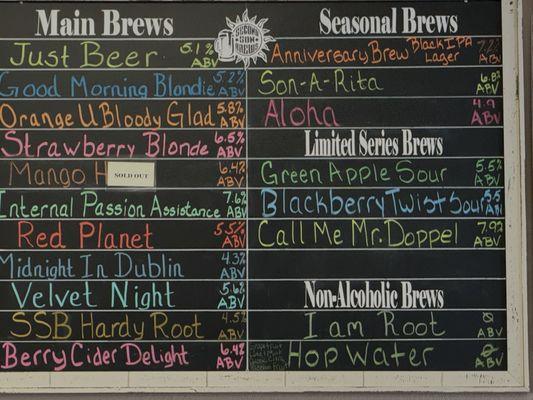 Main Brews
Just Beer 5.1% ABV
Good Morning Blondie 5.2% ABV
Orange U Bloody Glad 5.8% ABV
Strawberry Blonde 6.5% ABV
Mango H SOLD OUT 6.4% ABV
Internal Passion Assistance 7.6% ABV
Red Planet 5.5% ABV
Midnight In Dublin 4.3% ABV
Velvet Night 5.6% ABV
SSB Hardy Root 4.5% ABV
Berry Cider Delight 6.4% ABV
SECOND SON BREWING
Seasonal Brews
Anniversary Brew Black IPA Lager ABV
Son-A-Rita 6.8% ABV
Aloha 4.9 ABV
Limited Series Brews
Green Apple Sour 5.5% ABV
Blackberry Twist Sour 5.5 ABV
Call Me Mr. Doppel 7.9% ABV
Non-Alcoholic Brews
I am Root ABV
Hop Water ABV